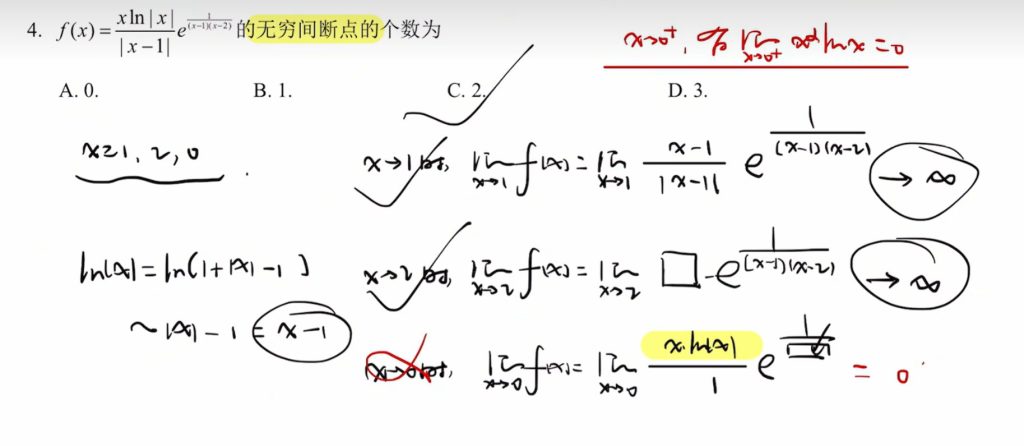 4. f(x)=\frac{x\ln|x|}{|x-1|}e^{\frac{1}{(x-1)(x-2)}}的无穷间断点的个数为
x→0⁺, lim_{x→0⁺} x^α ln x = 0
A. 0. B. 1. C. 2. D. 3.
x=1, 2, 0.
x→1时, lim_{x→1} f(x) = lim_{x→1} \frac{x-1}{|x-1|} e^{\frac{1}{(x-1)(x-2)}} → ∞
ln|x| = ln(1+|x|-1)
x→2时, lim_{x→2} f(x) = lim_{x→2} □·e^{\frac{1}{(x-1)(x-2)}} → ∞
~|x|-1 = x-1
x→0时, lim_{x→0} f(x) = lim_{x→0} \frac{x·ln|x|}{1} e = 0